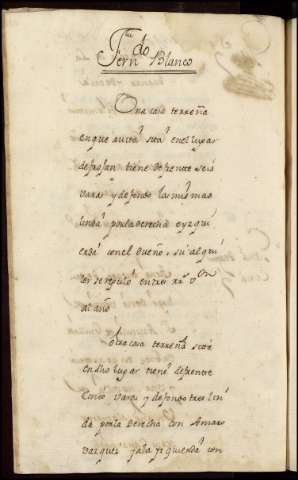 Fern.do Blanco
Una casa terreña
en que auita sita en el lugar
de frosan tiene de frente seis
varas y de fondo las mismas
linda por la derecha e yzqui
erda con el dueño su alqui
ler se reguló en tres r.s v.on
al año
Otra casa terreña sita
en dho lugar tiene de frente
Cinco varas y de fondo tres lin
da por la derecha con Amaro
vazquez yzquierda con